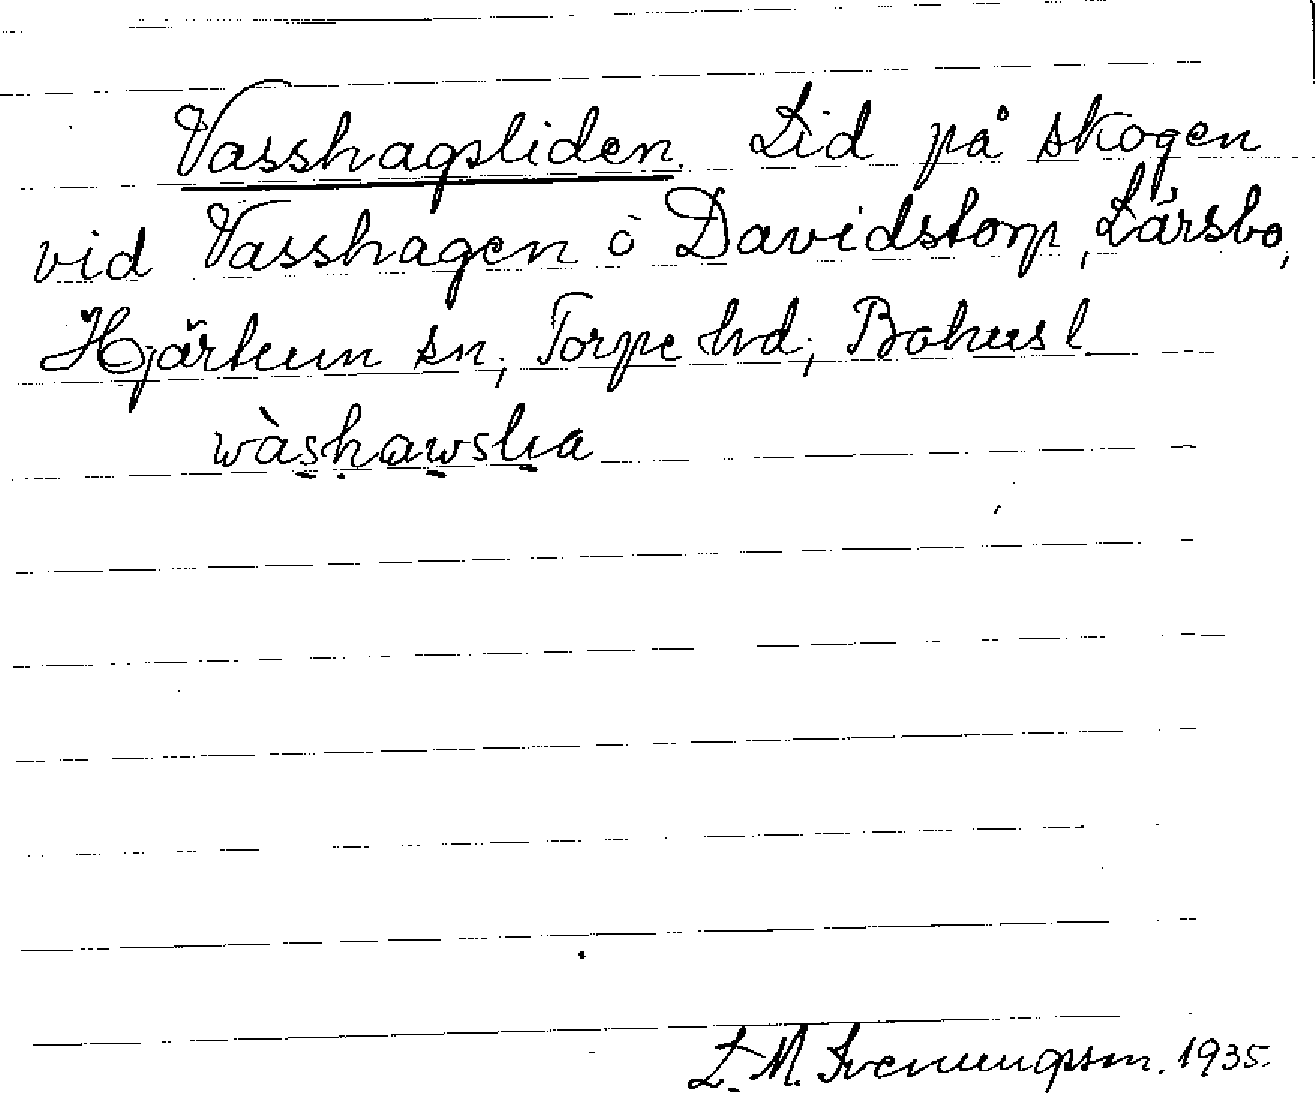 Vasshagsliden. Lid på skogen
vid Vasshagen ö Davidstorp, Lärsbo,
Hjärtum sn, Torpe hd, Bohusl
wàshawslia
L. M. Svenungsson. 1935.